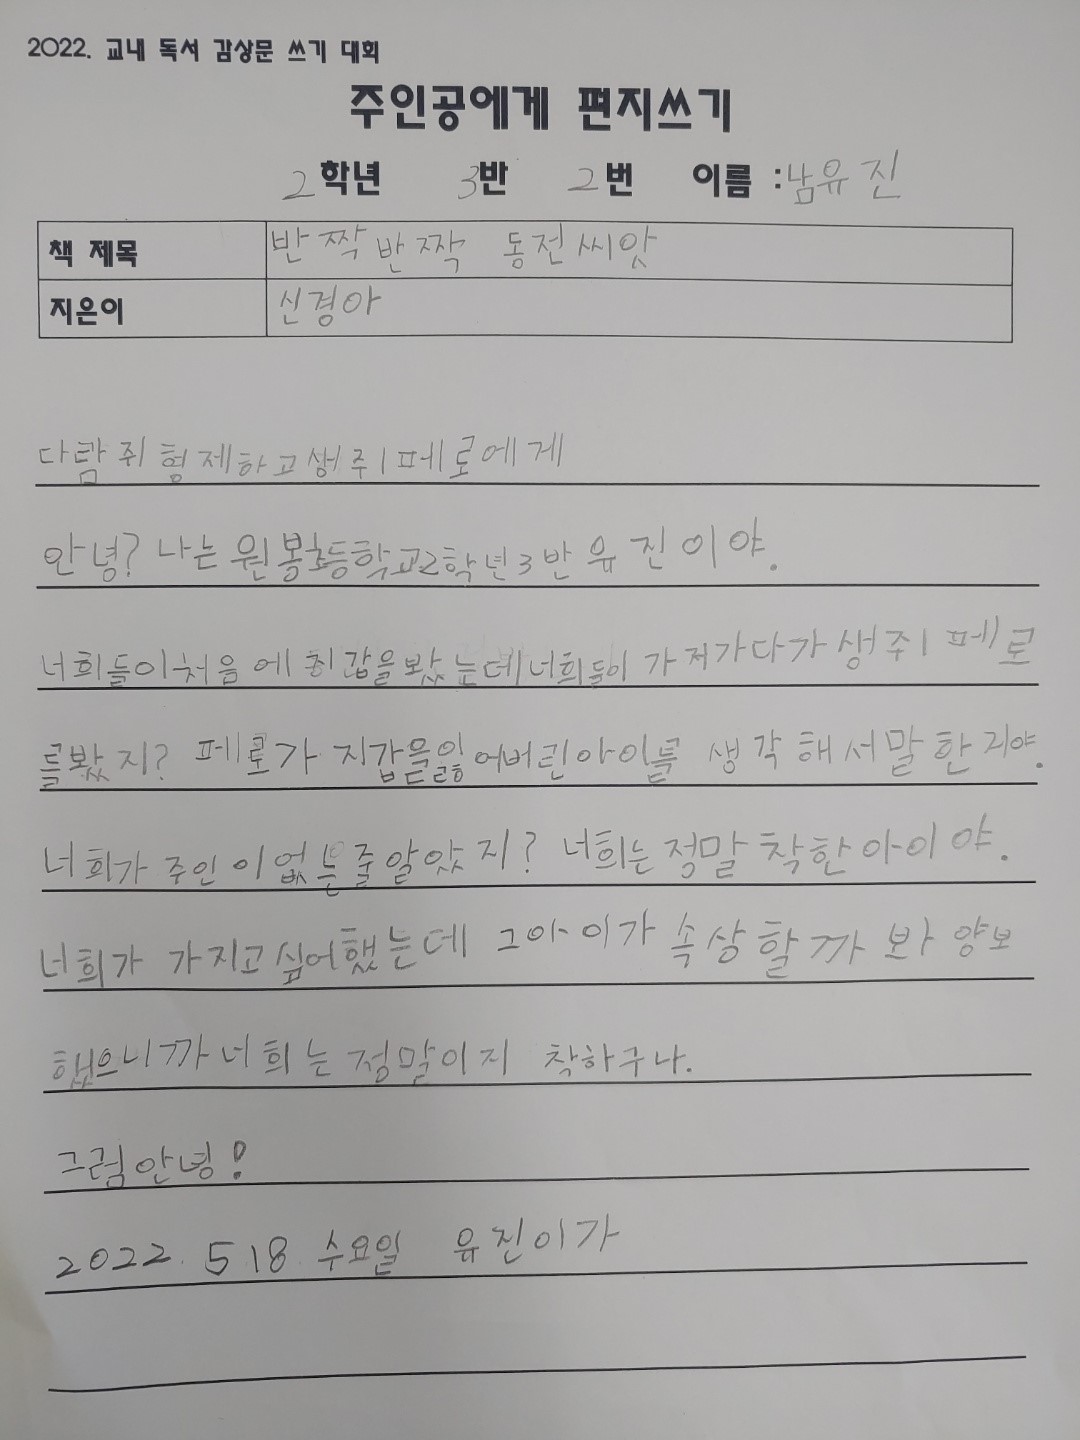 2022. 교내 독서 감상문 쓰기 대회
주인공에게 편지쓰기
2학년 3반 2번 이름 :남유진
책 제목 반짝반짝 동전씨앗
지은이 신경아
다람쥐형제하고생쥐페로에게
안녕? 나는 원봉초등학교2학년3반유진이야.
너희들이처음에 지갑을봤는데너희들이 가져가다가생쥐페로
를봤지? 페로가 지갑을잃어버린아이를 생각해서말한거야.
너희가 주인이없는줄알았지? 너희는 정말 착한아이야.
너희가 가지고싶어했는데 그아이가 속상할까 봐 양보
했으니까너희는 정말이지 착하구나.
그럼안녕!
2022. 5 18. 수요일 유진이가